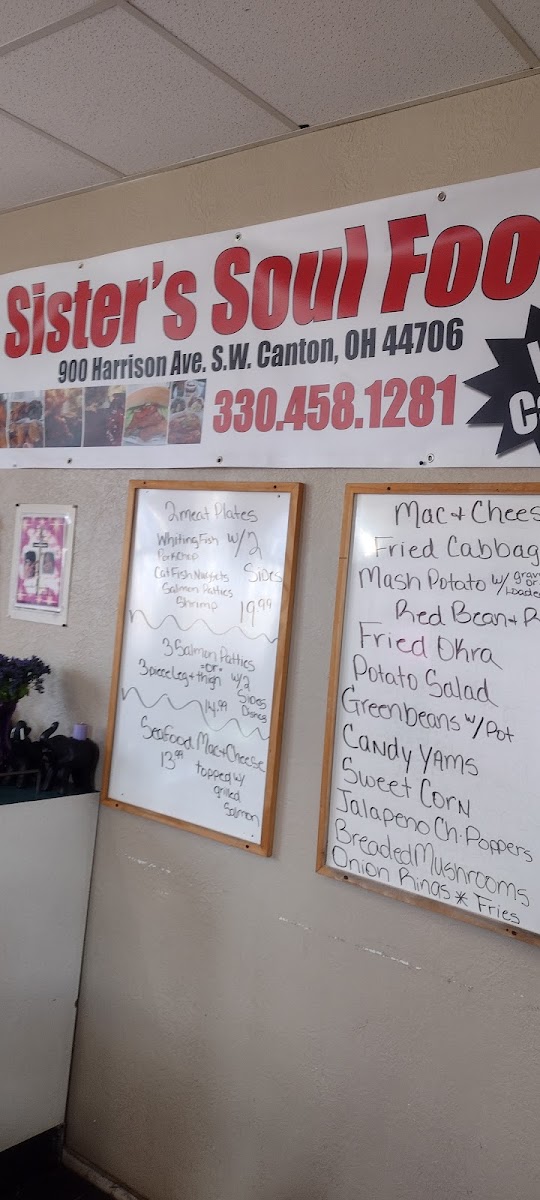 Sister's Soul Foo
900 Harrison Ave. S.W. Canton, OH 44706
330.458.1281
2 meat Plates
Whiting Fish w/2
Porkchop
Cat Fish Nuggets Sides
Salmon Patties
Shrimp 19.99
3 Salmon Patties
-or-
3 piece Leg + thigh w/2
Sides
14.99
Seafood Mac + Cheese
13.99 topped w/
grilled
Salmon
Mac + Chees
Fried Cabbag
Mash Potato w/ grav
or
Loaded
Red Bean + R
Fried Okra
Potato Salad
Greenbeans w/ Pot
Candy Yams
Sweet Corn
Jalapeno Ch. Poppers
Breaded Mushrooms
Onion Rings * Fries